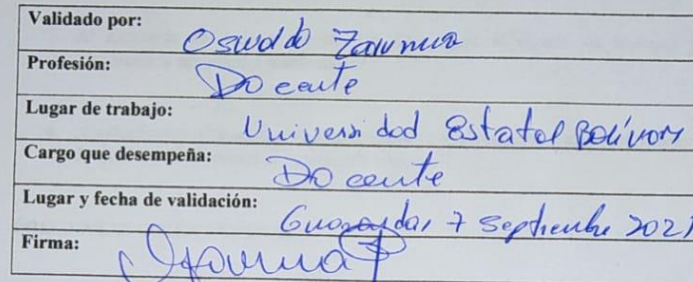 Validado por:
Oswaldo Zavnma
Profesión:
Docente
Lugar de trabajo:
Universidad Estatal Bolívar
Cargo que desempeña:
Docente
Lugar y fecha de validación:
Guaranda, 7 Septiembre 2021
Firma: